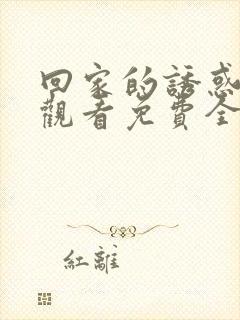 回家的誘惑
觀看免費全
紅離